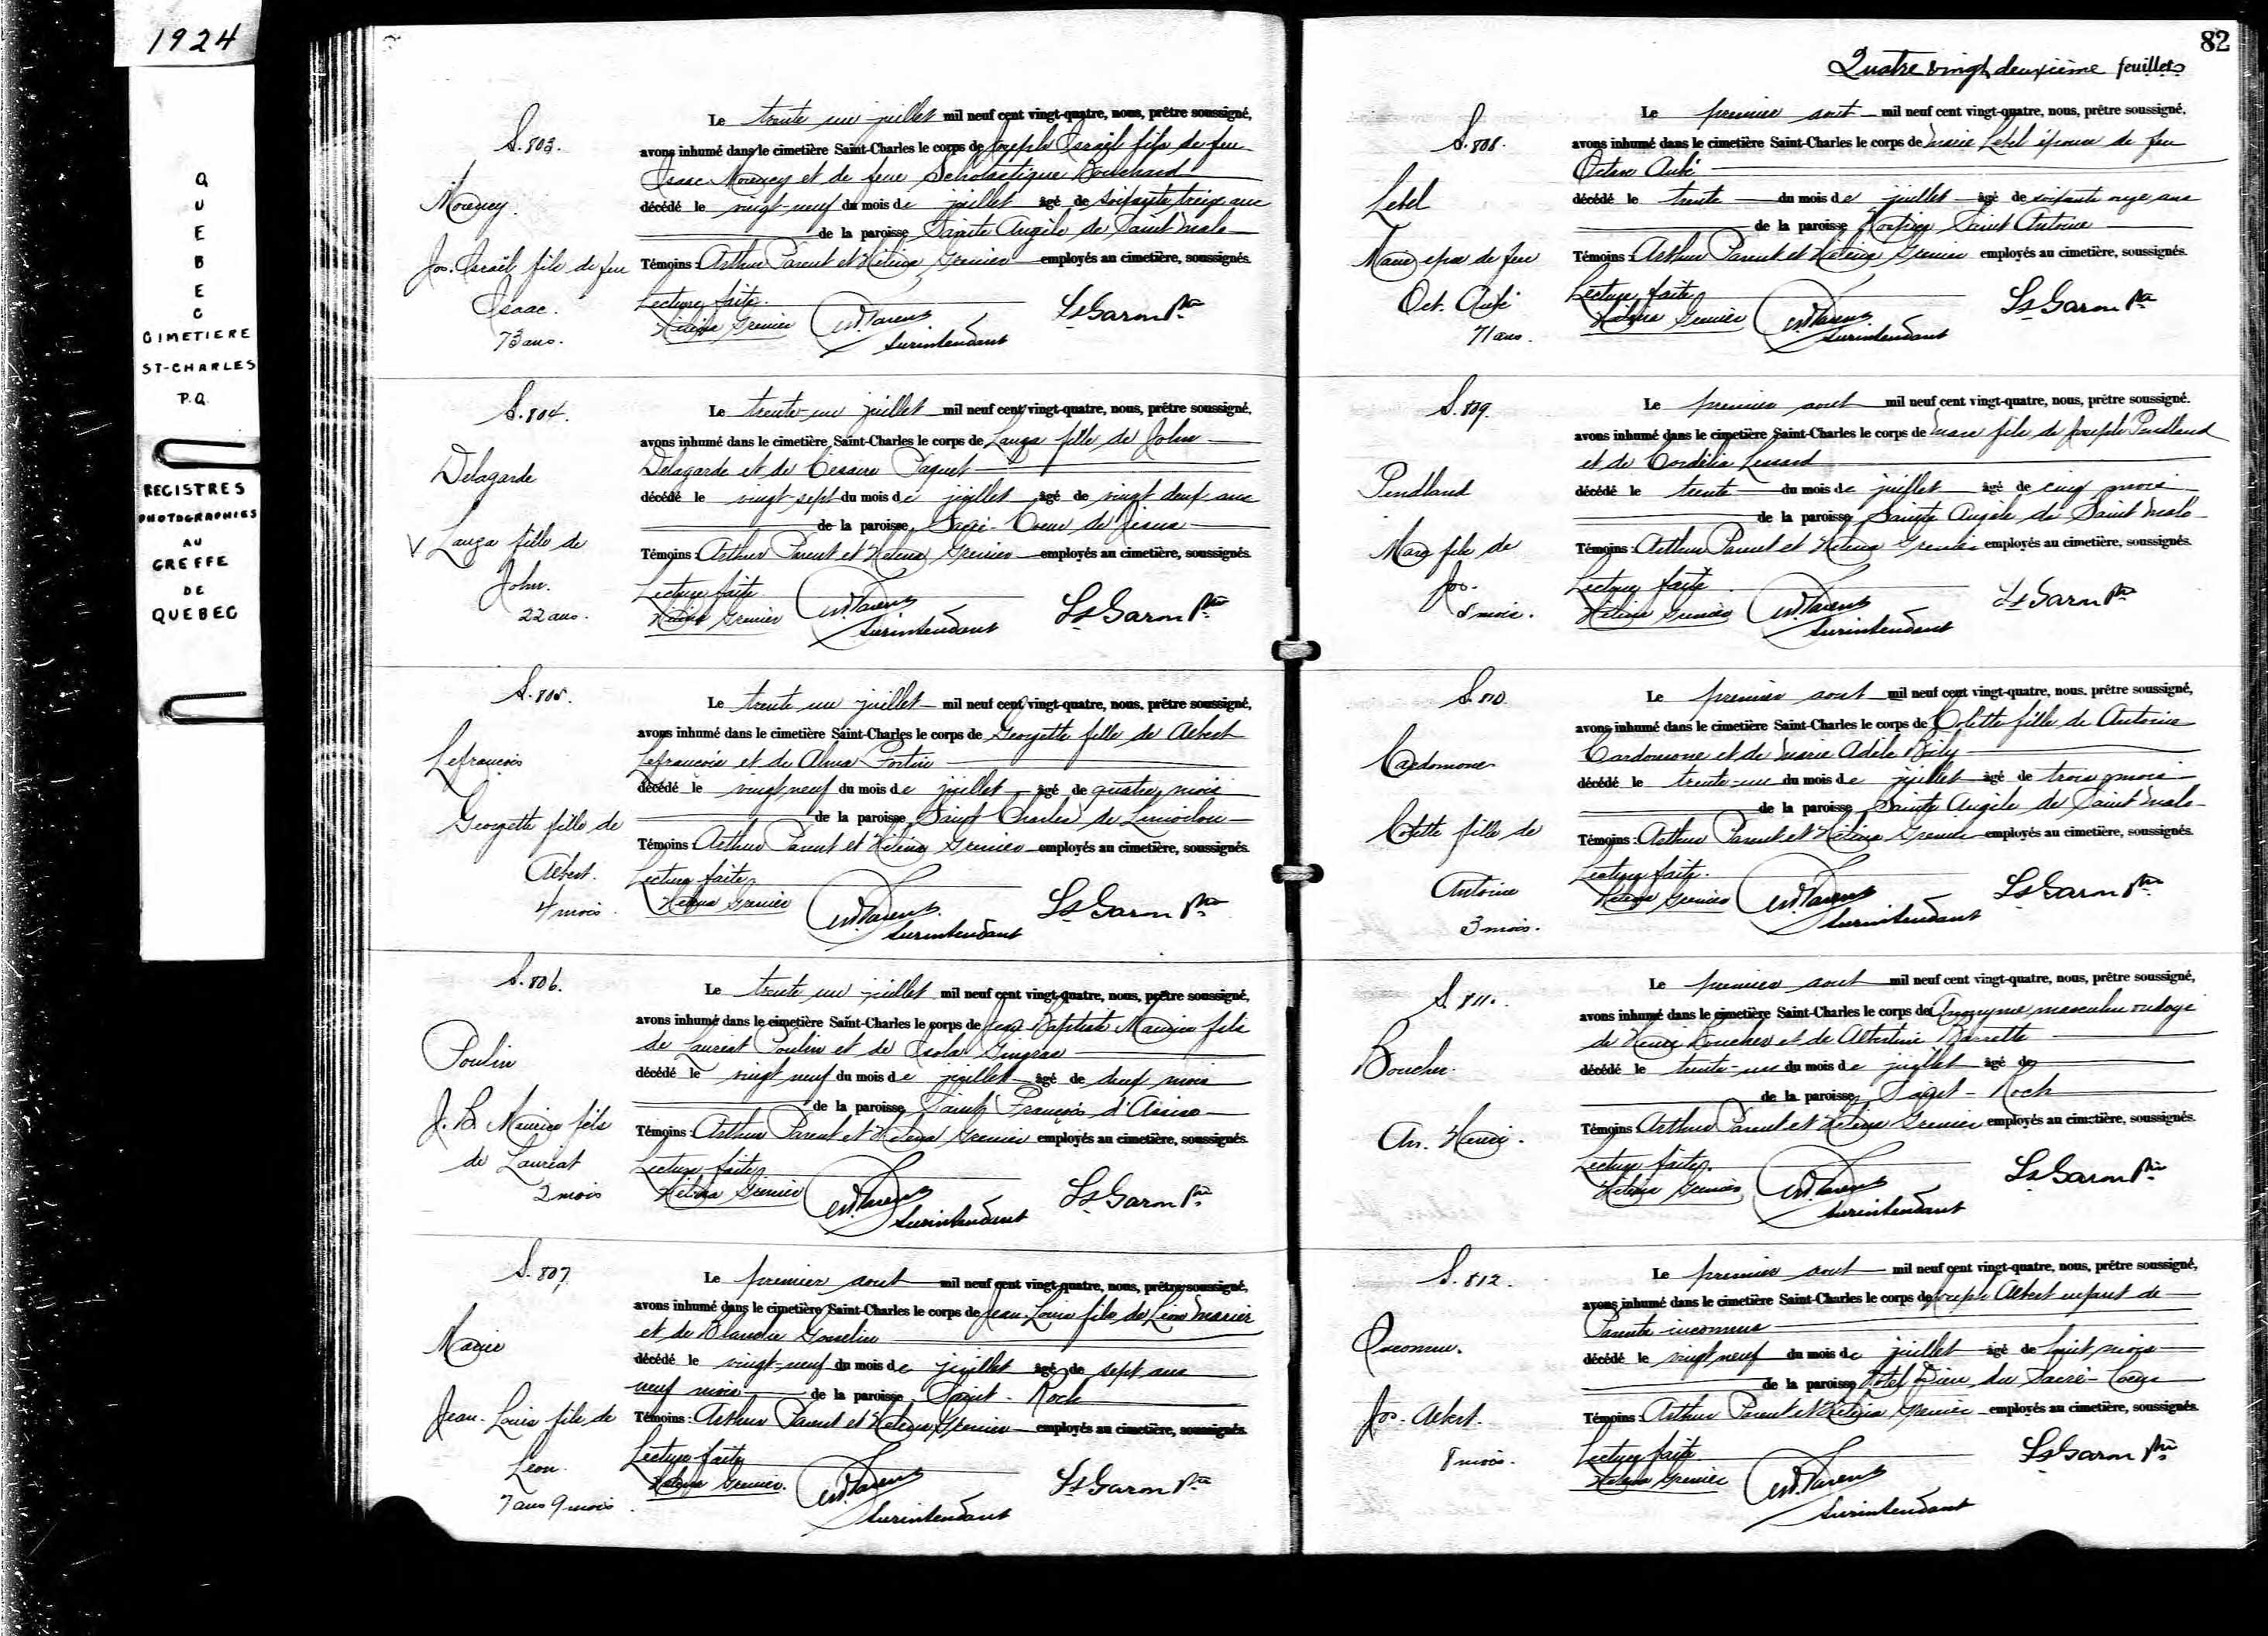 1924
QUEBEC
CIMETIERE
ST-CHARLES
P.Q.
REGISTRES
PHOTOGRAPHIES
AU
GREFFE
DE
QUEBEC
S. 803.
Jos. Israël fils de feu
Isaac.
73 ans.
Le trente un juillet mil neuf cent vingt-quatre, nous, prêtre soussigné,
avons inhumé dans le cimetière Saint-Charles le corps de Joseph Israël fils de feu
Isaac et de feue Scholastique Bouchard
décédé le vingt-neuf du mois de juillet âgé de soixante treize ans
de la paroisse Sainte Angèle de Saint Malo
Témoins: Arthur Parent et Helena Grenier employés au cimetière, soussignés.
Lecture faite.
Helena Grenier Parent Ls Garon Ptre
Surintendant
S. 804.
Delagarde
V Lauza fille de
John.
22 ans.
Le trente-un juillet mil neuf cent vingt-quatre, nous, prêtre soussigné,
avons inhumé dans le cimetière Saint-Charles le corps de Lauza fille de John
Delagarde et de Césaire Paquet
décédé le vingt-sept du mois de juillet âgé de vingt deux ans
de la paroisse Sacré-Coeur de Jésus
Témoins: Arthur Parent et Helena Grenier employés au cimetière, soussignés.
Lecture faite
Helena Grenier Parent Ls Garon Ptre
Surintendant
S. 805.
Lefrançois
Georgette fille de
Albert.
4 mois.
Le trente un juillet mil neuf cent vingt-quatre, nous, prêtre soussigné,
avons inhumé dans le cimetière Saint-Charles le corps de Georgette fille de Albert
Lefrançois et de Alma Fortin
décédé le vingt neuf du mois de juillet âgé de quatre mois
de la paroisse Saint Charles de Limoilou
Témoins: Arthur Parent et Helena Grenier employés au cimetière, soussignés.
Lecture faite
Helena Grenier Parent Ls Garon Ptre
Surintendant
S. 806.
Poulin
J. B. Maurice fils
de Lauréat
2 mois
Le trente un juillet mil neuf cent vingt-quatre, nous, prêtre soussigné,
avons inhumé dans le cimetière Saint-Charles le corps de Jean Baptiste Maurice fils
de Lauréat Poulin et de Isola Gingras
décédé le vingt neuf du mois de juillet âgé de deux mois
de la paroisse Saint François d'Assise
Témoins: Arthur Parent et Helena Grenier employés au cimetière, soussignés.
Lecture faite
Helena Grenier Parent Ls Garon Ptre
Surintendant
S. 807
Marier
Jean-Louis fils de
Léon
7 ans 9 mois.
Le premier aout mil neuf cent vingt-quatre, nous, prêtre soussigné,
avons inhumé dans le cimetière Saint-Charles le corps de Jean-Louis fils de Léon Marier
et de Blandie Gosselin
décédé le vingt-neuf du mois de juillet âgé de sept ans
neuf mois de la paroisse Saint-Roch
Témoins: Arthur Parent et Helena Grenier employés au cimetière, soussignés.
Lecture faite
Helena Grenier. Parent Ls Garon Ptre
Surintendant
82
Quatre vingt deuxième feuillets
S. 808.
Lebel
Marie epse de feu
Oct. Aubé
71 ans.
Le premier aout mil neuf cent vingt-quatre, nous, prêtre soussigné,
avons inhumé dans le cimetière Saint-Charles le corps de Marie Lebel épouse de feu
Octave Aubé
décédé le trente du mois de juillet âgé de soixante onze ans
de la paroisse Hospice Saint Antoine
Témoins: Arthur Parent et Helena Grenier employés au cimetière, soussignés.
Lecture faite
Helena Grenier Parent Ls Garon Ptre
Surintendant
S. 809.
Pendland
Marc fils de
Jos.
5 mois.
Le premier aout mil neuf cent vingt-quatre, nous, prêtre soussigné.
avons inhumé dans le cimetière Saint-Charles le corps de Marc fils de Joseph Pendland
et de Cordélia Lessard
décédé le trente du mois de juillet âgé de cinq mois
de la paroisse Sainte Angèle de Saint Malo
Témoins: Arthur Parent et Helena Grenier employés au cimetière, soussignés.
Lecture faite
Helena Grenier Parent Ls Garon Ptre
Surintendant
S. 810.
Cardomone
Colette fille de
Antoine
3 mois.
Le premier aout mil neuf cent vingt-quatre, nous, prêtre soussigné,
avons inhumé dans le cimetière Saint-Charles le corps de Colette fille de Antoine
Cardomone et de Marie Adèle Bily
décédé le trente-un du mois de juillet âgé de trois mois
de la paroisse Sainte Angèle de Saint Malo
Témoins: Arthur Parent et Helena Grenier employés au cimetière, soussignés.
Lecture faite.
Helena Grenier Parent Ls Garon Ptre
Surintendant
S. 811.
Boucher.
An. Henri.
Le premier aout mil neuf cent vingt-quatre, nous, prêtre soussigné,
avons inhumé dans le cimetière Saint-Charles le corps de Anonyme masculin ondoyé
de Henri Boucher et de Albertine Barrette
décédé le trente-un du mois de juillet âgé de
de la paroisse Saint-Roch
Témoins: Arthur Parent et Helena Grenier employés au cimetière, soussignés.
Lecture faite.
Helena Grenier Parent Ls Garon Ptre
Surintendant
S. 812.
Inconnu.
Jos-Albert.
8 mois.
Le premier aout mil neuf cent vingt-quatre, nous, prêtre soussigné,
avons inhumé dans le cimetière Saint-Charles le corps de Joseph Albert enfant de
Parents inconnus
décédé le vingt neuf du mois de juillet âgé de huit mois
de la paroisse Hotel Dieu du Sacré-Coeur
Témoins: Arthur Parent et Helena Grenier employés au cimetière, soussignés.
Lecture faite
Helena Grenier Parent Ls Garon Ptre
Surintendant